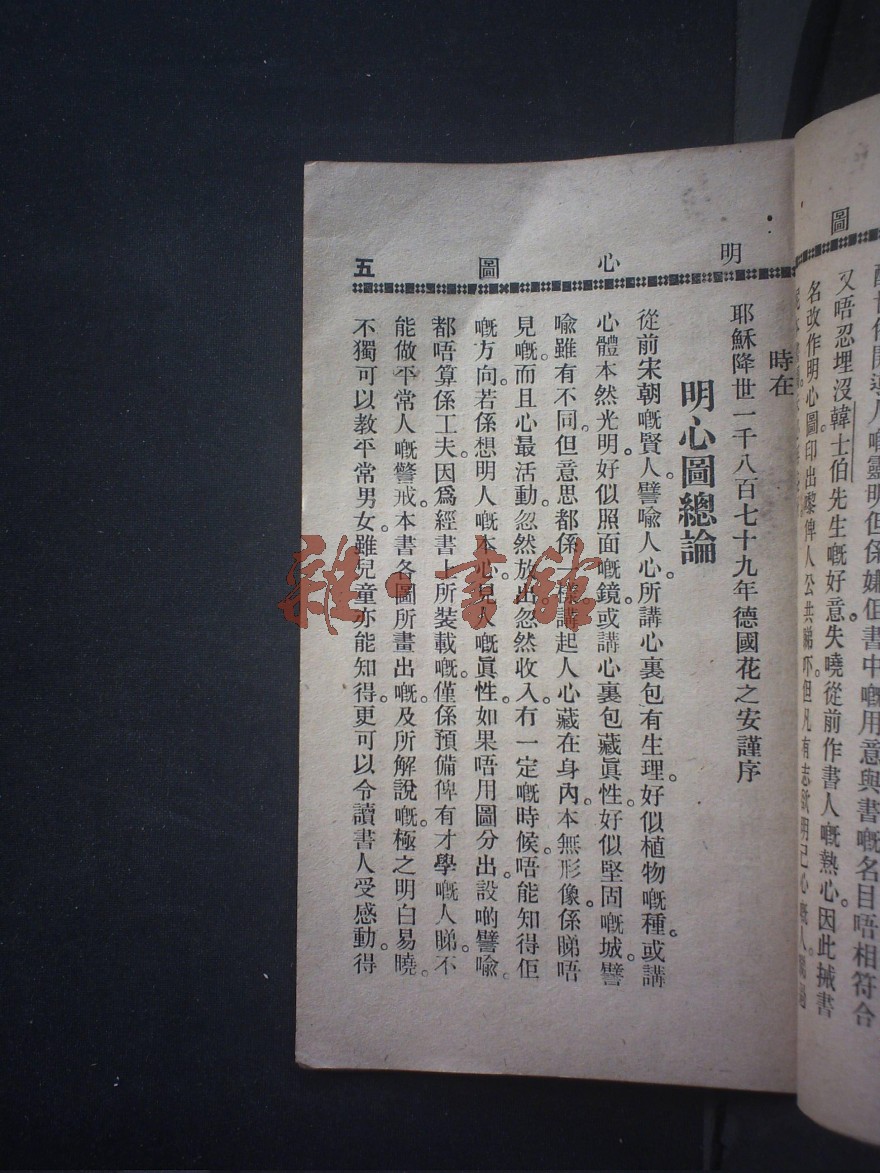 圖
配
又唔忍埋沒韓士伯先生嘅好意失嘵從前作書人嘅熱心因此搣書
名改作明心圖印出嚟俾人公共睇吓但凡有志欲明己心嘅人
明心圖 五
時在
耶穌降世一千八百七十九年德國花之安謹序
明心圖總論
從前宋朝嘅賢人。譬喩人心。所講心裏包有生理。好似植物嘅種。或講
心體本然光明。好似照面嘅鏡。或講心裏包藏眞性。好似堅固嘅城。譬
喩雖有不同。但意思都係一樣。講起人心藏在身內。本無形像。係睇唔
見嘅。而且心最活動。忽然放出。忽然收入。冇一定嘅時候。唔能知得佢
嘅方向。若係想明人嘅本心。見人嘅眞性。如果唔用圖分出。設啲譬喩。
都唔算係工夫。因爲經書上所裝載嘅。僅係預備俾有才學嘅人睇。不
能做平常人嘅警戒。本書各圖所畫出嘅。及所解說嘅。極之明白易曉。
不獨可以教平常男女。雖兒童亦能知得。更可以令讀書人受感動。得
雜·書館